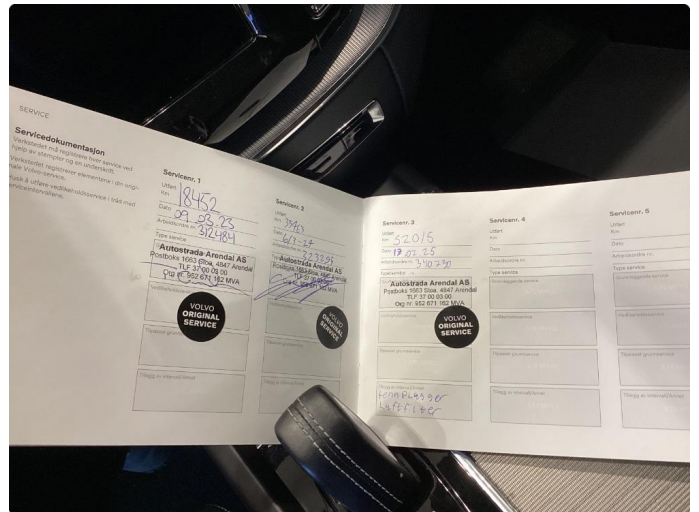 SERVICE
Servicedokumentasjon
Verkstedet må registrere hver service ved
hjelp av stempler og en underskrift.
Verkstedet registrerer elementene i din origi-
nale Volvo-service.
Husk å utføre vedlikeholdsservice i tråd med
serviceintervallene.
Servicenr. 1
Utført
Km 18452
Dato 09.03.23
Arbeidsordre nr. 312484
Type service
Autostrada Arendal AS
Postboks 1663 Stoa, 4847 Arendal
TLF 37 00 03 00
Org nr. 952 671 162 MVA
VOLVO
ORIGINAL
SERVICE
Tilpasset grunnservice
Tillegg av intervall/annet
Servicenr. 2
Utført
Km
Dato
Arbeidsordre nr. 323295
Autostrada Arendal AS
Postboks 1663 Stoa, 4847 Arendal
TLF 37 00 03 00
Org nr. 952 671 162 MVA
VOLVO
ORIGINAL
SERVICE
Tilpasset grunnservice
Tillegg av intervall/annet
Servicenr. 3
Utført
Km 52015
Dato 13.02.25
Arbeidsordre nr. 340230
Autostrada Arendal AS
Postboks 1663 Stoa, 4847 Arendal
TLF 37 00 03 00
Org nr. 952 671 162 MVA
VOLVO
ORIGINAL
SERVICE
Tilpasset grunnservice
Tillegg av intervall/annet
tennplugger
Luftfilter
Servicenr. 4
Utført
Km
Dato
Arbeidsordre nr.
Type service
Grunnleggende service
Vedlikeholdsservice
Tilpasset grunnservice
Tillegg av intervall/annet
Servicenr. 5
Utført
Km
Dato
Arbeidsordre nr.
Type service
Grunnleggende service
Vedlikeholdsservice
Tilpasset grunnservice
Tillegg av intervall/annet